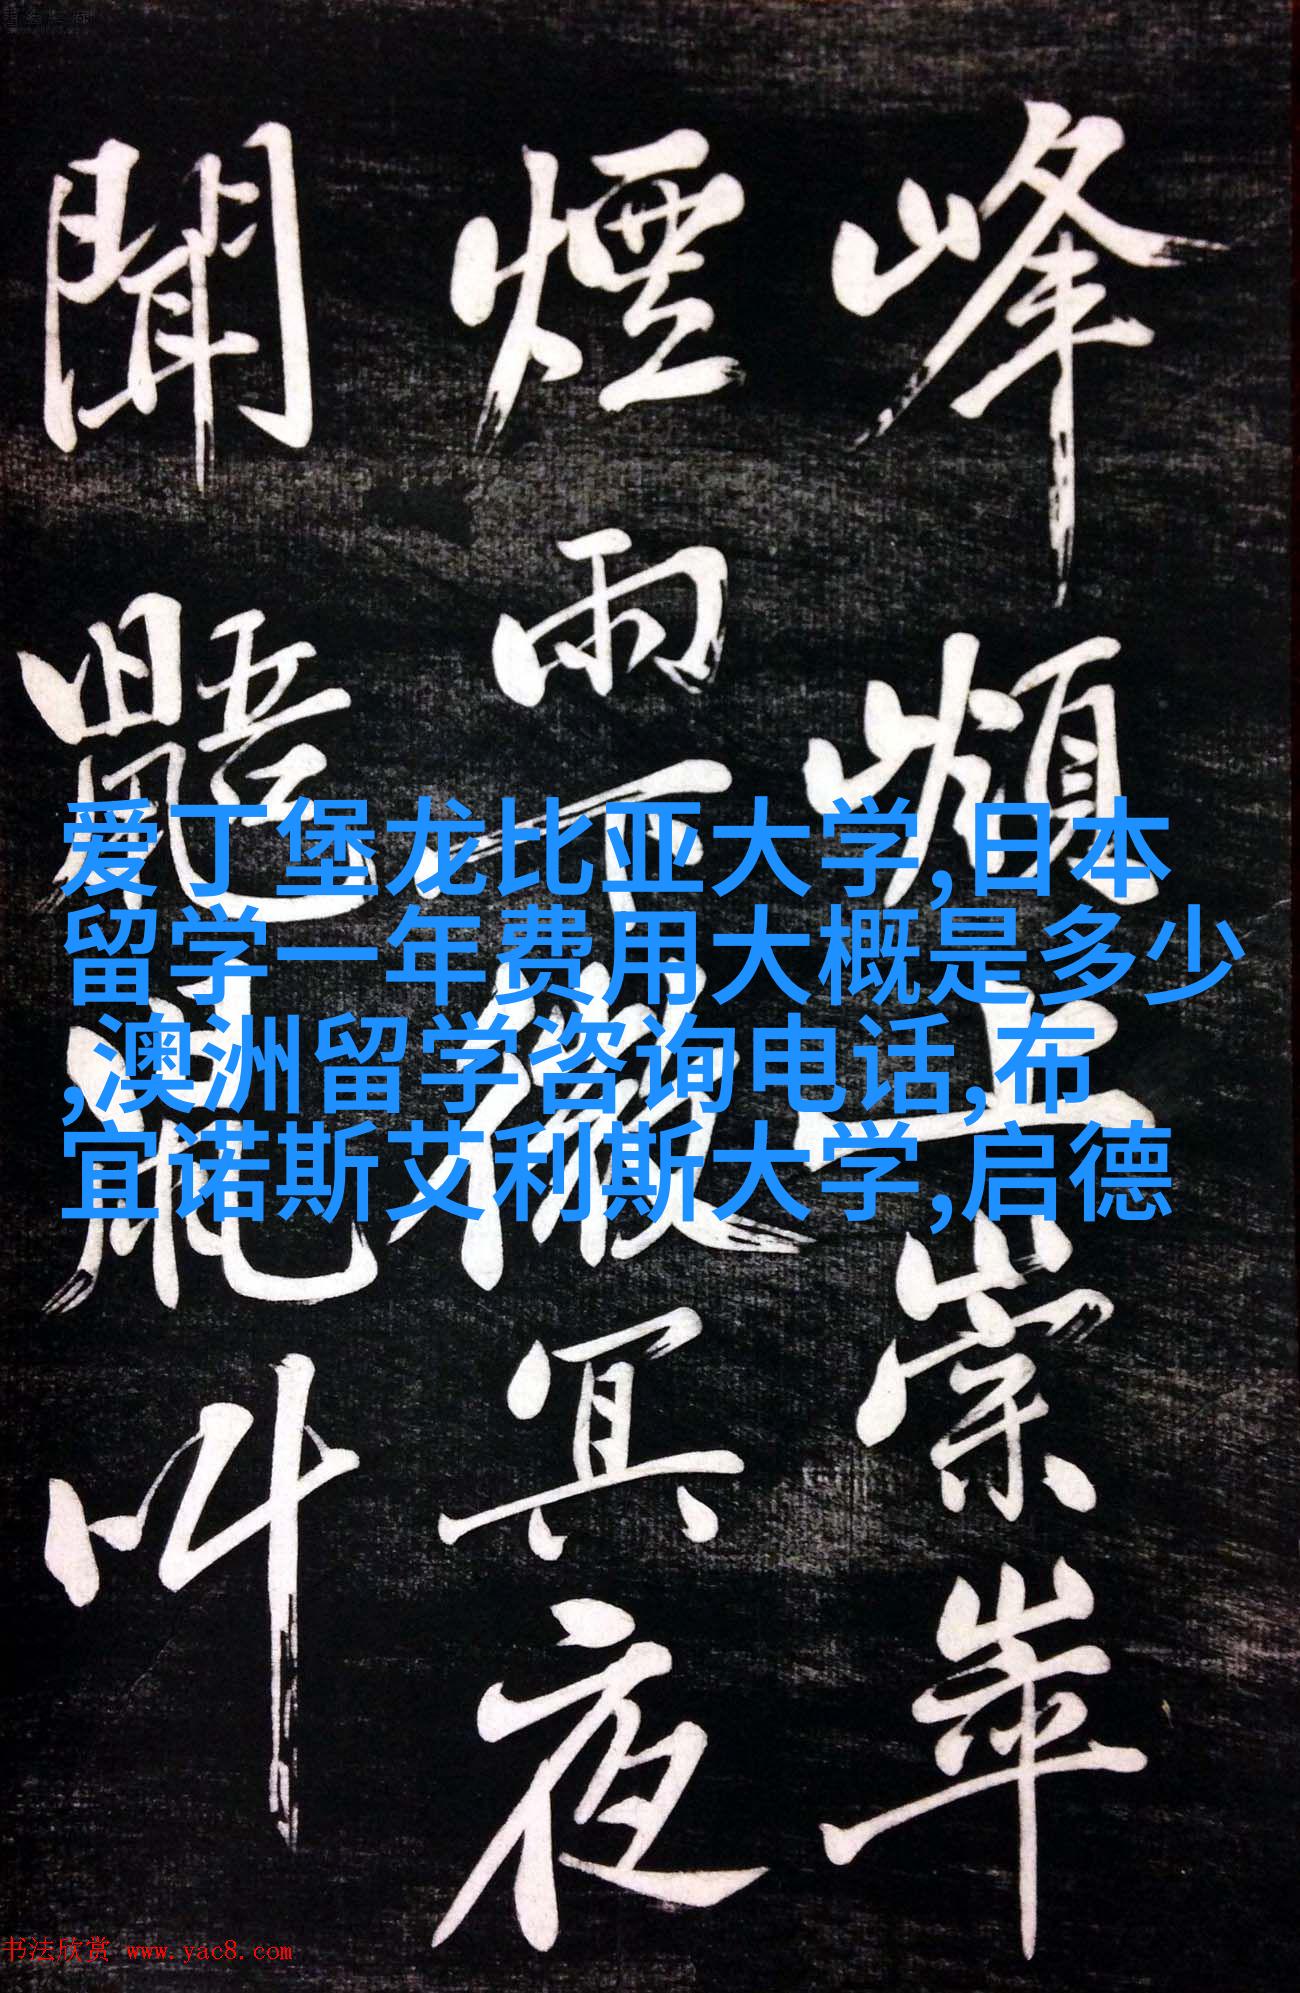 峰嵿上崇崒
煙雨下微冥夜
聞鼯鼠叫
爱丁堡龙比亚大学,日本
留学一年费用大概是多少
,澳洲留学咨询电话,布
宜诺斯艾利斯大学,启德
书法欣赏 www.yac8.com